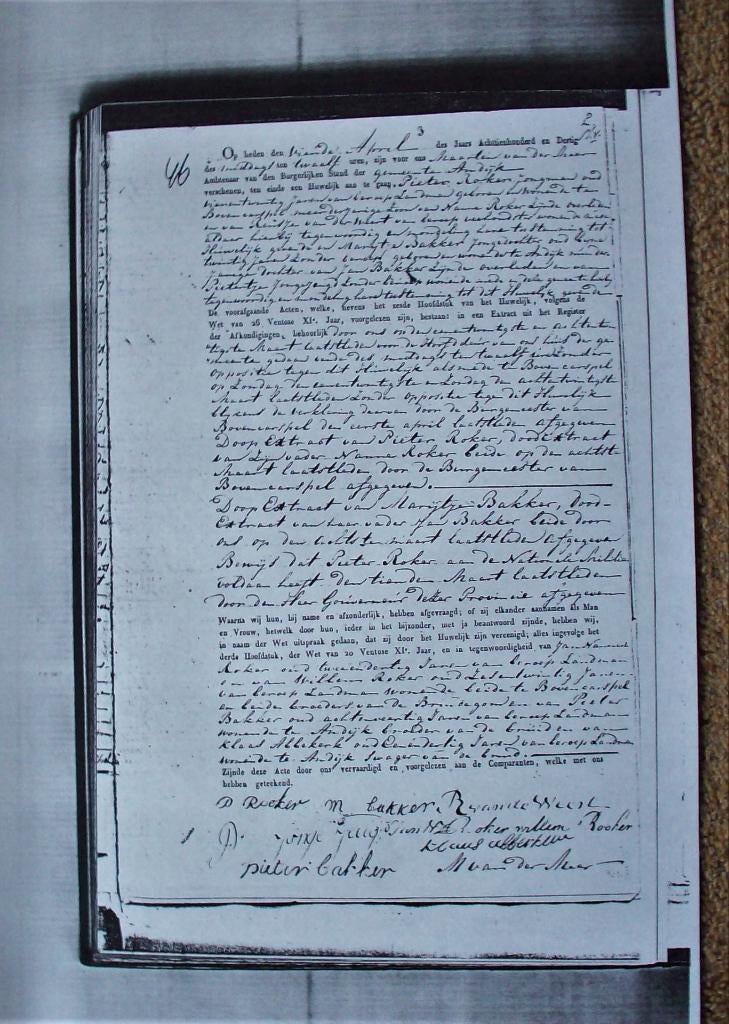 3
2
46
Op heden den vierde April des Jaars Achttienhonderd en Dertig
des middags ten twaalf uren, zijn voor ons Maarten van der Meer
Ambtenaar van den Burgerlijken Stand der Gemeente Andijk
verschenen, ten einde een Huwelijk aan te gaan, Pieter Roker jongman oud
Jaren van beroep Landman geboren en wonende te
Bovencarspel meerderjarige Zoon van Nanne Roker Zijnde overleden
en van van der Weert van beroep wonende
aldaar hierbij tegenwoordig en mondeling hare toestemming tot
Huwelijk gevende en Marijtje Bakker jongedochter oud
twintig Jaren Zonder beroep geboren en wonende te Andijk minder
Jarige dochter van Jan Bakker Zijnde overleden en van
Pietertje Zonder beroep wonende mede
tegenwoordig en mondeling hare toestemming tot dit Huwelijk gevende
De voorafgaande Acten, welke, nevens het zesde Hoofdstuk van het Huwelijk, volgens de
Wet van 26 Ventose XIe. Jaar, voorgelezen zijn, bestaan: in een Extract uit het Register
der Afkondigingen, behoorlijk door ons op den eenentwintigste en achtentwin
tigste Maart laatstleden voor de Hoofddeur van ons huis der ge
meente gedaan des middags ten twaalf uren Zonder
oppositie tegen dit Huwelijk als mede te Bovencarspel
op Zondag den eenentwintigste en Zondag den achtentwintigste
Maart laatstleden Zonder oppositie tegen dit Huwelijk
blijkens de verklaring daarvan door de Burgemeester van
Bovencarspel den eerste april laatstleden afgegeven
Doop Extract van Pieter Roker, Dood Extract
van Zijn vader Nanne Roker beide op den achtste
Maart laatstleden door de Burgemeester van
Bovencarspel afgegeven.
Doop Extract van Marijtje Bakker, Dood-
Extract van haar vader Jan Bakker beide door
ons op den achtsten maart laatstleden afgegeven
Bewijs dat Pieter Roker aan de Nationale Militie
voldaan heeft den tienden Maart laatstleden
door den Heer Gouverneur dezer Provincie afgegeven
Waarna wij hun, bij name en afzonderlijk, hebben afgevraagd; of zij elkander aannamen als Man
en Vrouw, hetwelk door hun, ieder in het bijzonder, met ja beantwoord zijnde, hebben wij,
in naam der Wet uitspraak gedaan, dat zij door het Huwelijk zijn vereenigd; alles ingevolge het
derde Hoofdstuk, der Wet van 20 Ventose XIe. Jaar, en in tegenwoordigheid van Jan Nanne
Roker oud tweeendertig Jaren van beroep Landman
en van Willem Roker oud Zesentwintig Jaren
van beroep Landman wonende beide te Bovencarspel
en beide broeders van de Bruidegom en van Pieter
Bakker oud Jaren van beroep Landman
wonende te Andijk broeder van de Bruid en van
Klaas Abbekerk oud eenendertig Jaren van beroep Landman
wonende te Andijk Swager van de Bruid
Zijnde deze Acte door ons vervaardigd en voorgelezen aan de Comparanten, welke met ons
hebben geteekend.
P Rooker m bakker R van de Weert
P. Jan N Rooker willem Rooker
klaas abbekerk
pieter bakker M van der Meer